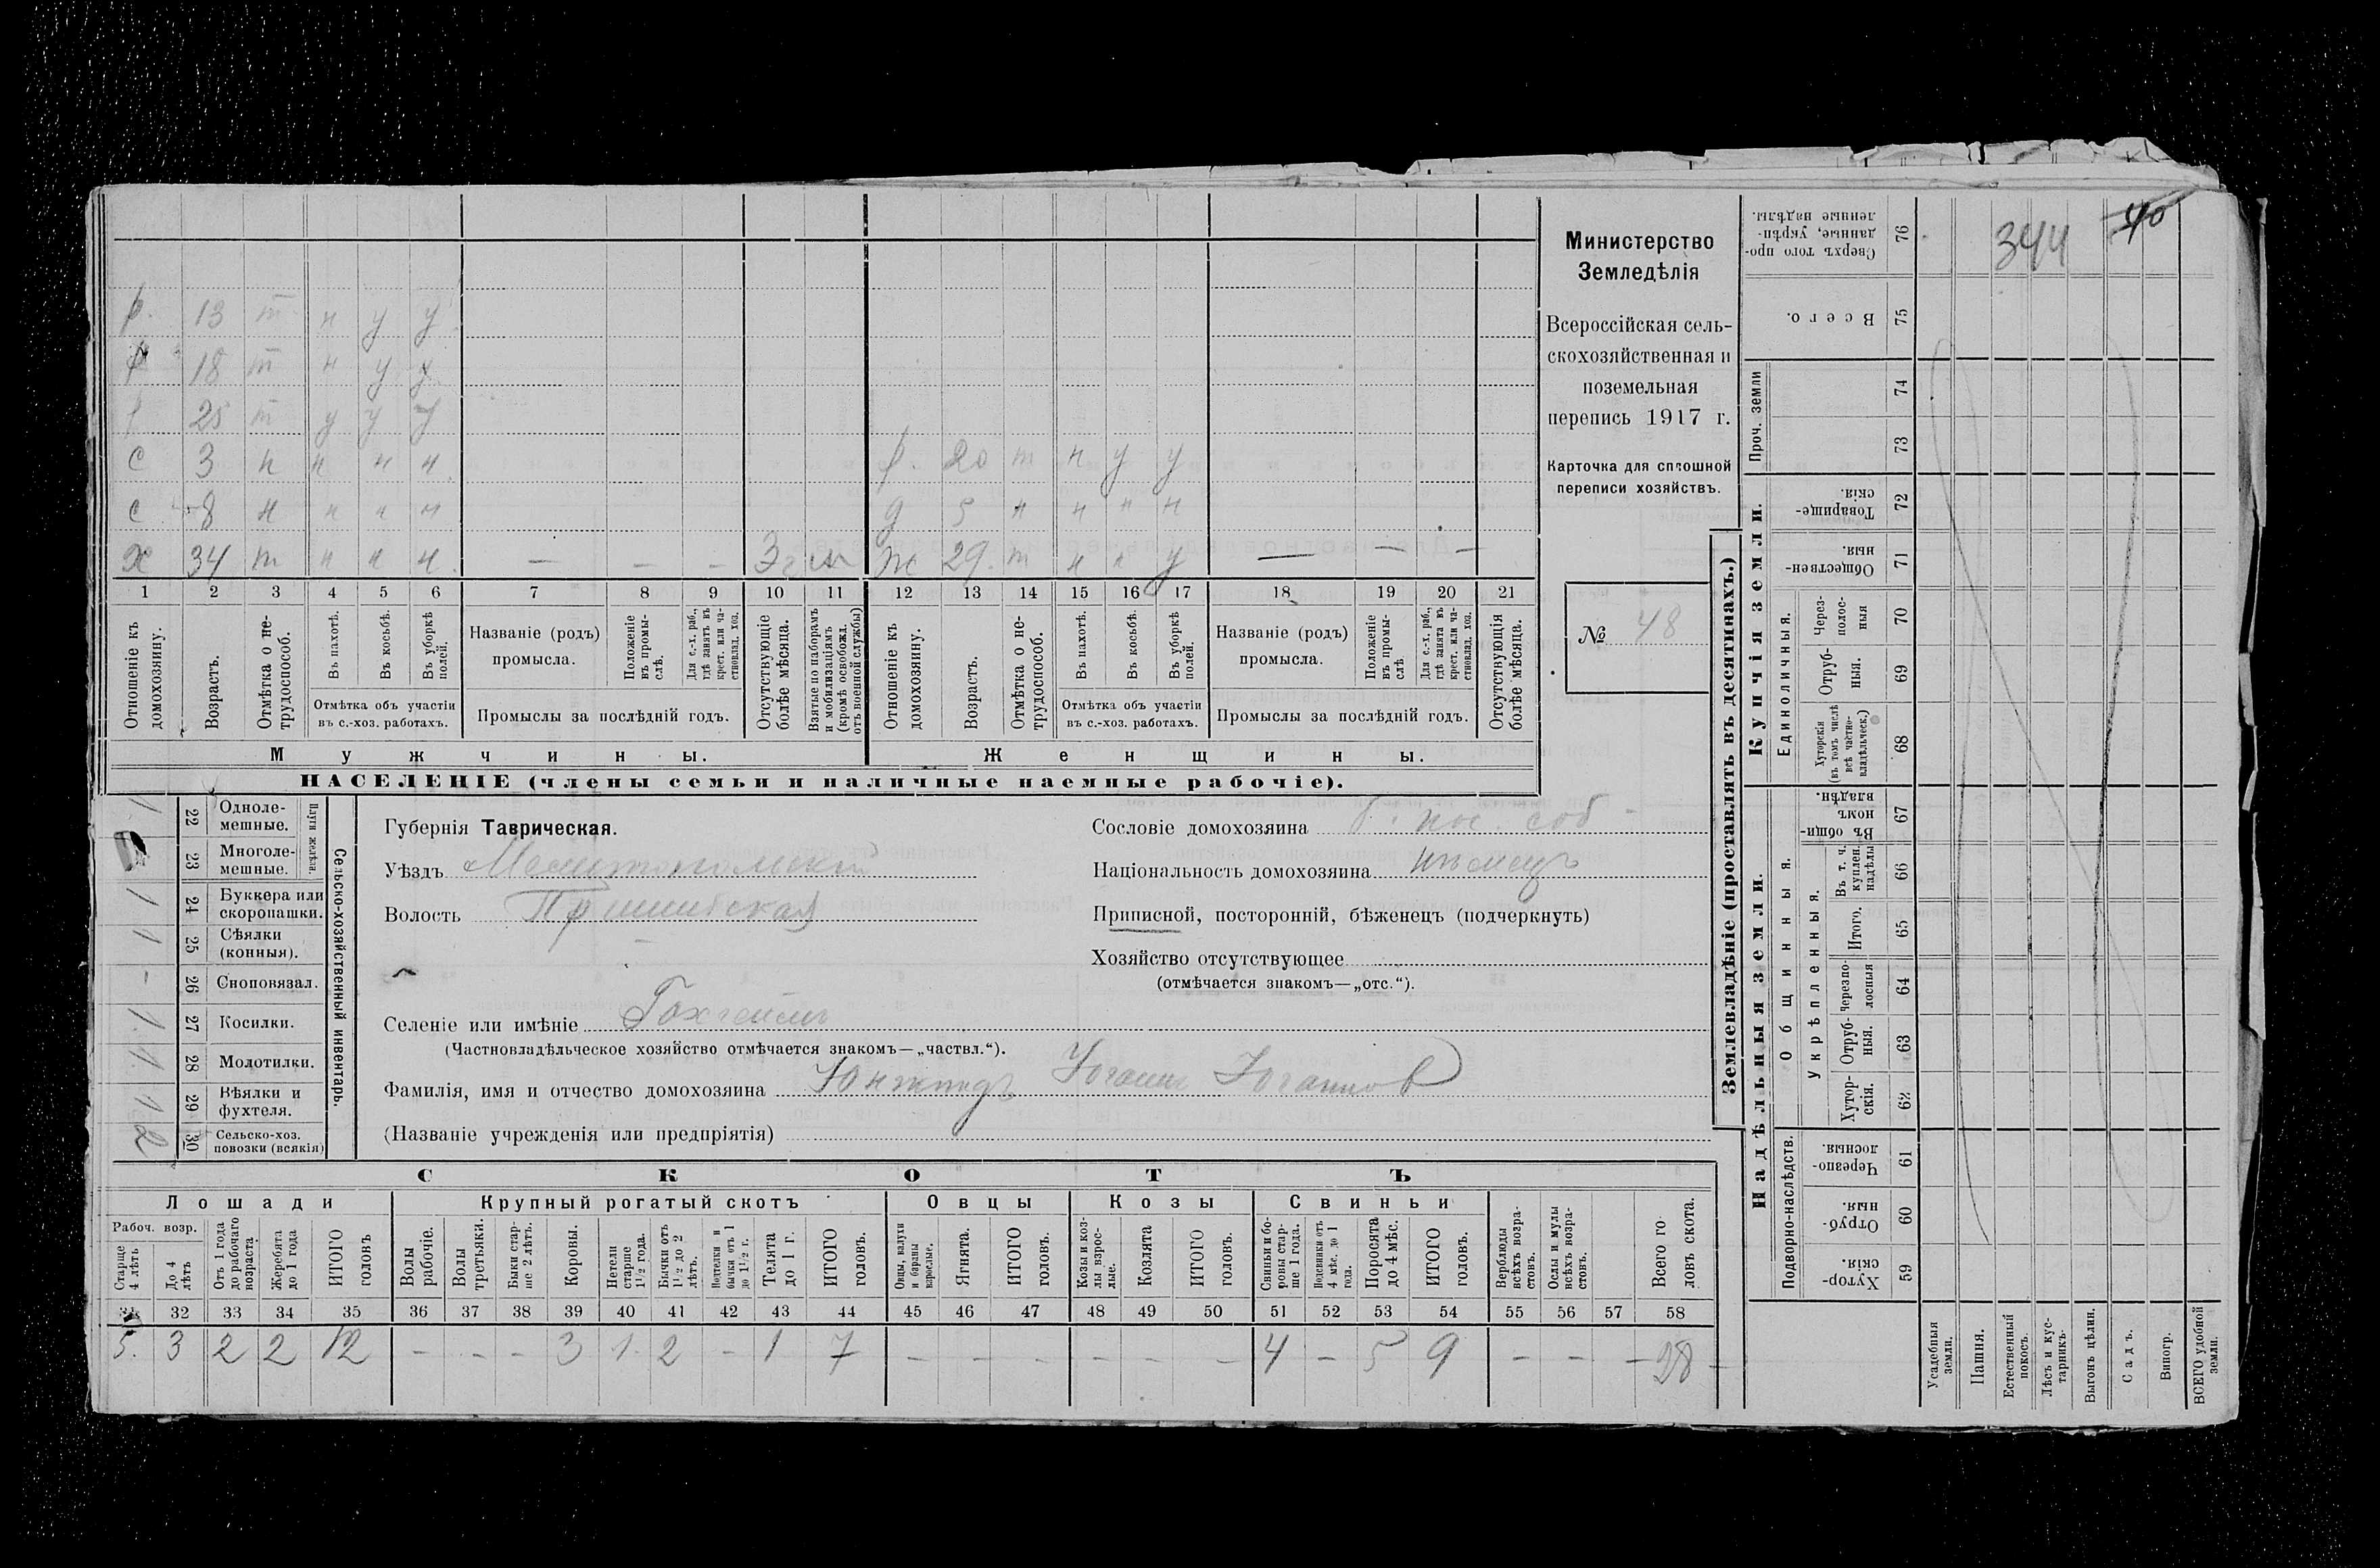 344 40
р. 13 т н у у
р 18 т н у у
р 25 т у у у
с 3 н н н н р. 20 т н у у
с 8 н н н н д 5 н н н н
х 34 т н н н. — — — ж 29. т н н у — — —
1 2 3 4 5 6 7 8 9 10 11 12 13 14 15 16 17 18 19 20 21
Отношеніе къ домохозяину.
Возрастъ.
Отмѣтка о не-
трудоспособ.
Въ пахотѣ.
Въ косьбѣ.
Въ уборкѣ полей.
Отмѣтка объ участіи
въ с.-хоз. работахъ.
Названіе (родъ)
промысла.
Положеніе
въ промы-
слѣ.
Для с.-х. раб.,
гдѣ занятъ въ
крест. или ча-
стновлад. хоз.
Промыслы за послѣдній годъ.
Отсутствующіе
болѣе мѣсяца.
Взятые по наборамъ
и мобилизаціямъ
(кромѣ освобожд.
отъ военной службы)
Отношеніе къ
домохозяину.
Возрастъ.
Отмѣтка о не-
трудоспособ.
Въ пахотѣ.
Въ косьбѣ.
Въ уборкѣ
полей.
Отмѣтка объ участіи
въ с.-хоз. работахъ.
Названіе (родъ)
промысла.
Положеніе
въ промы-
слѣ
Для с.-х. раб.,
гдѣ занята въ
крест. или ча-
стновлад. хоз.
Промыслы за послѣдній годъ.
Отсутствующія
болѣе мѣсяца.
Мужчины. Женщины.
НАСЕЛЕНІЕ (члены семьи и наличные наемные рабочіе).
Министерство
Земледѣлія
Всероссійская сель-
скохозяйственная и
поземельная
перепись 1917 г.
Карточка для сплошной
переписи хозяйствъ.
№ 48
Сельско-хозяйственный инвентарь.
Плуги желѣзн.
1 22 Одноле-
мешные.
23 Многоле-
мешные.
1 24 Буккера или
скоропашки.
1 25 Сѣялки
(конныя).
- 26 Сноповязал.
1. 27 Косилки.
1. 28 Молотилки.
1 29 Вѣялки и
фухтеля.
2 30 Сельско-хоз.
повозки (всякія)
Губернія Таврическая.
Уѣздъ Мелитопольскій
Волость Пришибская
Сословіе домохозяина пос. соб -
Національность домохозяина нѣмецъ
Приписной, посторонній, бѣженецъ (подчеркнуть)
Хозяйство отсутствующее
(отмѣчается знакомъ—„отс.“).
Селеніе или имѣніе Гохгеймъ
(Частновладѣльческое хозяйство отмѣчается знакомъ—„частвл.“).
Фамилія, имя и отчество домохозяина Иоганнъ Иоганнов
(Названіе учрежденія или предпріятія)
СКОТЪ
Лошади Крупный рогатый скотъ Овцы Козы Свиньи
Рабоч. возр.
Старше
4 лѣтъ
До 4
лѣтъ
Отъ 1 года
до рабочаго
возраста
Жеребята
до 1 года
ИТОГО
головъ
Волы
рабочіе.
Волы
третьяки.
Быки стар-
ше 2 лѣтъ.
Коровы.
Нетели
старше
1½ года.
Бычки отъ
1½ до 2
лѣтъ.
Подтелки и
бычки отъ 1
до 1½ г.
Телята
до 1 г.
ИТОГО
головъ.
Овцы, валухи
и бараны
взрослые.
Ягнята.
ИТОГО
головъ.
Козы и коз-
лы взрос-
лые.
Козлята
ИТОГО
головъ.
Свиньи и бо-
ровы стар-
ше 1 года.
Подсвинки отъ
4 мѣс. до 1
года.
Поросята
до 4 мѣс.
ИТОГО
головъ.
Верблюды
всѣхъ возра-
стовъ.
Ослы и мулы
всѣхъ возра-
стовъ.
Всего го
ловъ скота.
32 33 34 35 36 37 38 39 40 41 42 43 44 45 46 47 48 49 50 51 52 53 54 55 56 57 58
5. 3 2 2 12 - - - 3 1. 2 - 1 7 - - - - - - 4 - 5 9 - - - 28 -
Землевладѣніе (проставлять въ десятинахъ.)
Купчія земли.
Надѣльныя земли.
Сверхъ того про-
данные, укрѣп-
ленные надѣлы. 76
Всего. 75
Проч. земли
74
73
Товарище-
скія. 72
Обществен-
ныя. 71
Единоличныя.
Через-
полос-
ныя 70
Отруб-
ныя. 69
Хуторскія
(въ томъ числѣ
всѣ частно-
владѣльческ.) 68
Общинныя.
Въ общи-
номъ
владѣн. 67
Укрѣпленныя.
Въ т. ч.
куплен.
надѣлы 66
Итого. 65
Черезпо-
лосныя 64
Отруб-
ныя. 63
Хутор-
скія. 62
Подворно-наслѣдств.
Черезпо-
лосныя. 61
Отруб-
ныя. 60
Хутор-
скія. 59
Усадебныя
земли.
Пашня.
Естественный
покосъ.
Лѣсъ и кус-
тарникъ.
Выгонъ цѣлин.
Садъ.
Виногр.
ВСЕГО удобной
земли.